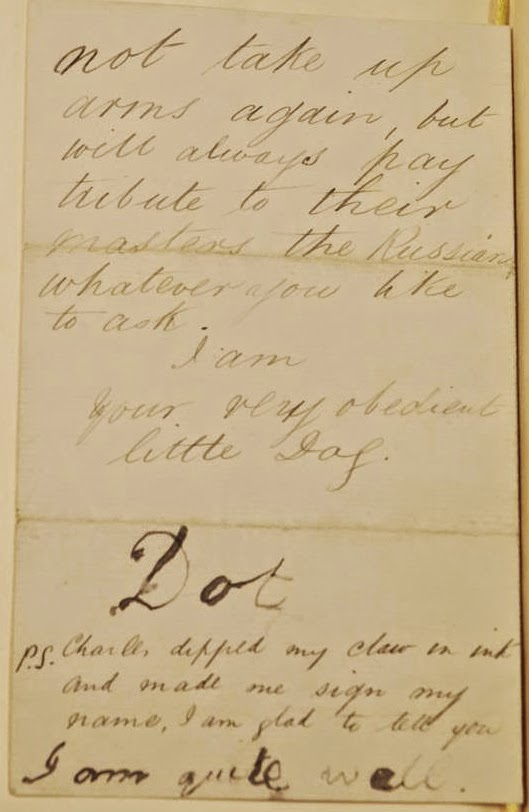 not take up
arms again, but
will always pay
tribute to their
masters the Russians
whatever you like
to ask.
I am
your very obedient
little Dog.
Dot
P.S. Charles dipped my claw in ink
and made me sign my
name, I am glad to tell you
I am quite well.